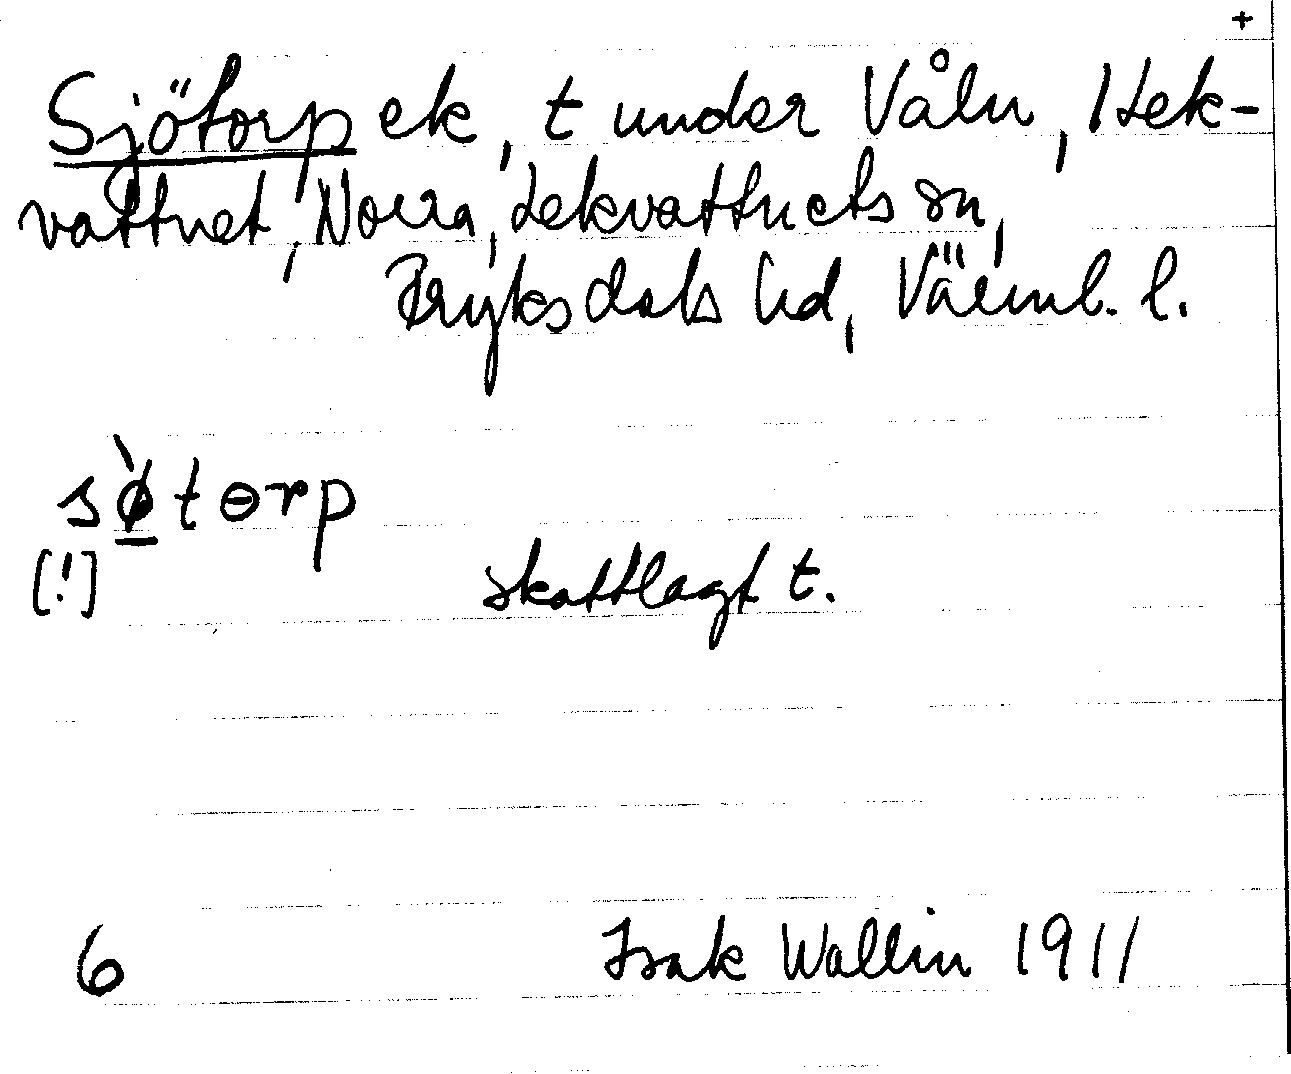 +
Sjötorp ek, t under Våln, Lek-
vattnet, Norra, Lekvattnets sn,
Fryksdals hd, Värml. l.
sø̀torp
[!]
skattlagt t.
6 Isak Wallin 1911